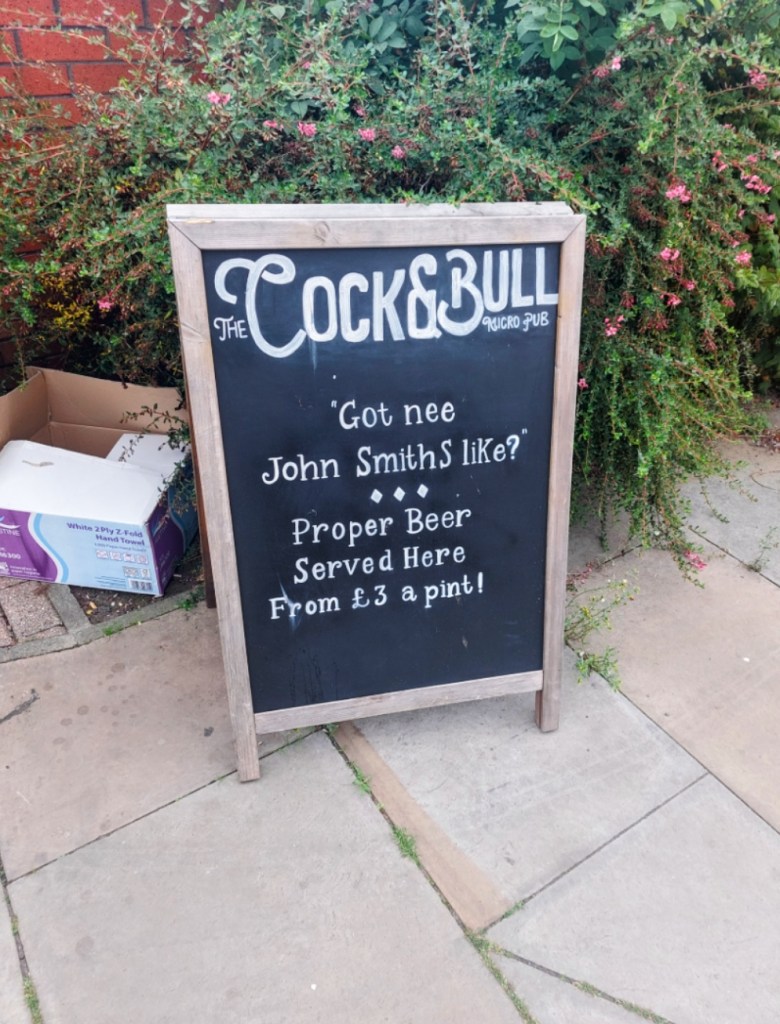 THE COCK & BULL
MICRO PUB
"Got nee
John Smiths like?"
Proper Beer
Served Here
From £3 a pint!
White 2Ply Z-Fold
Hand Towel